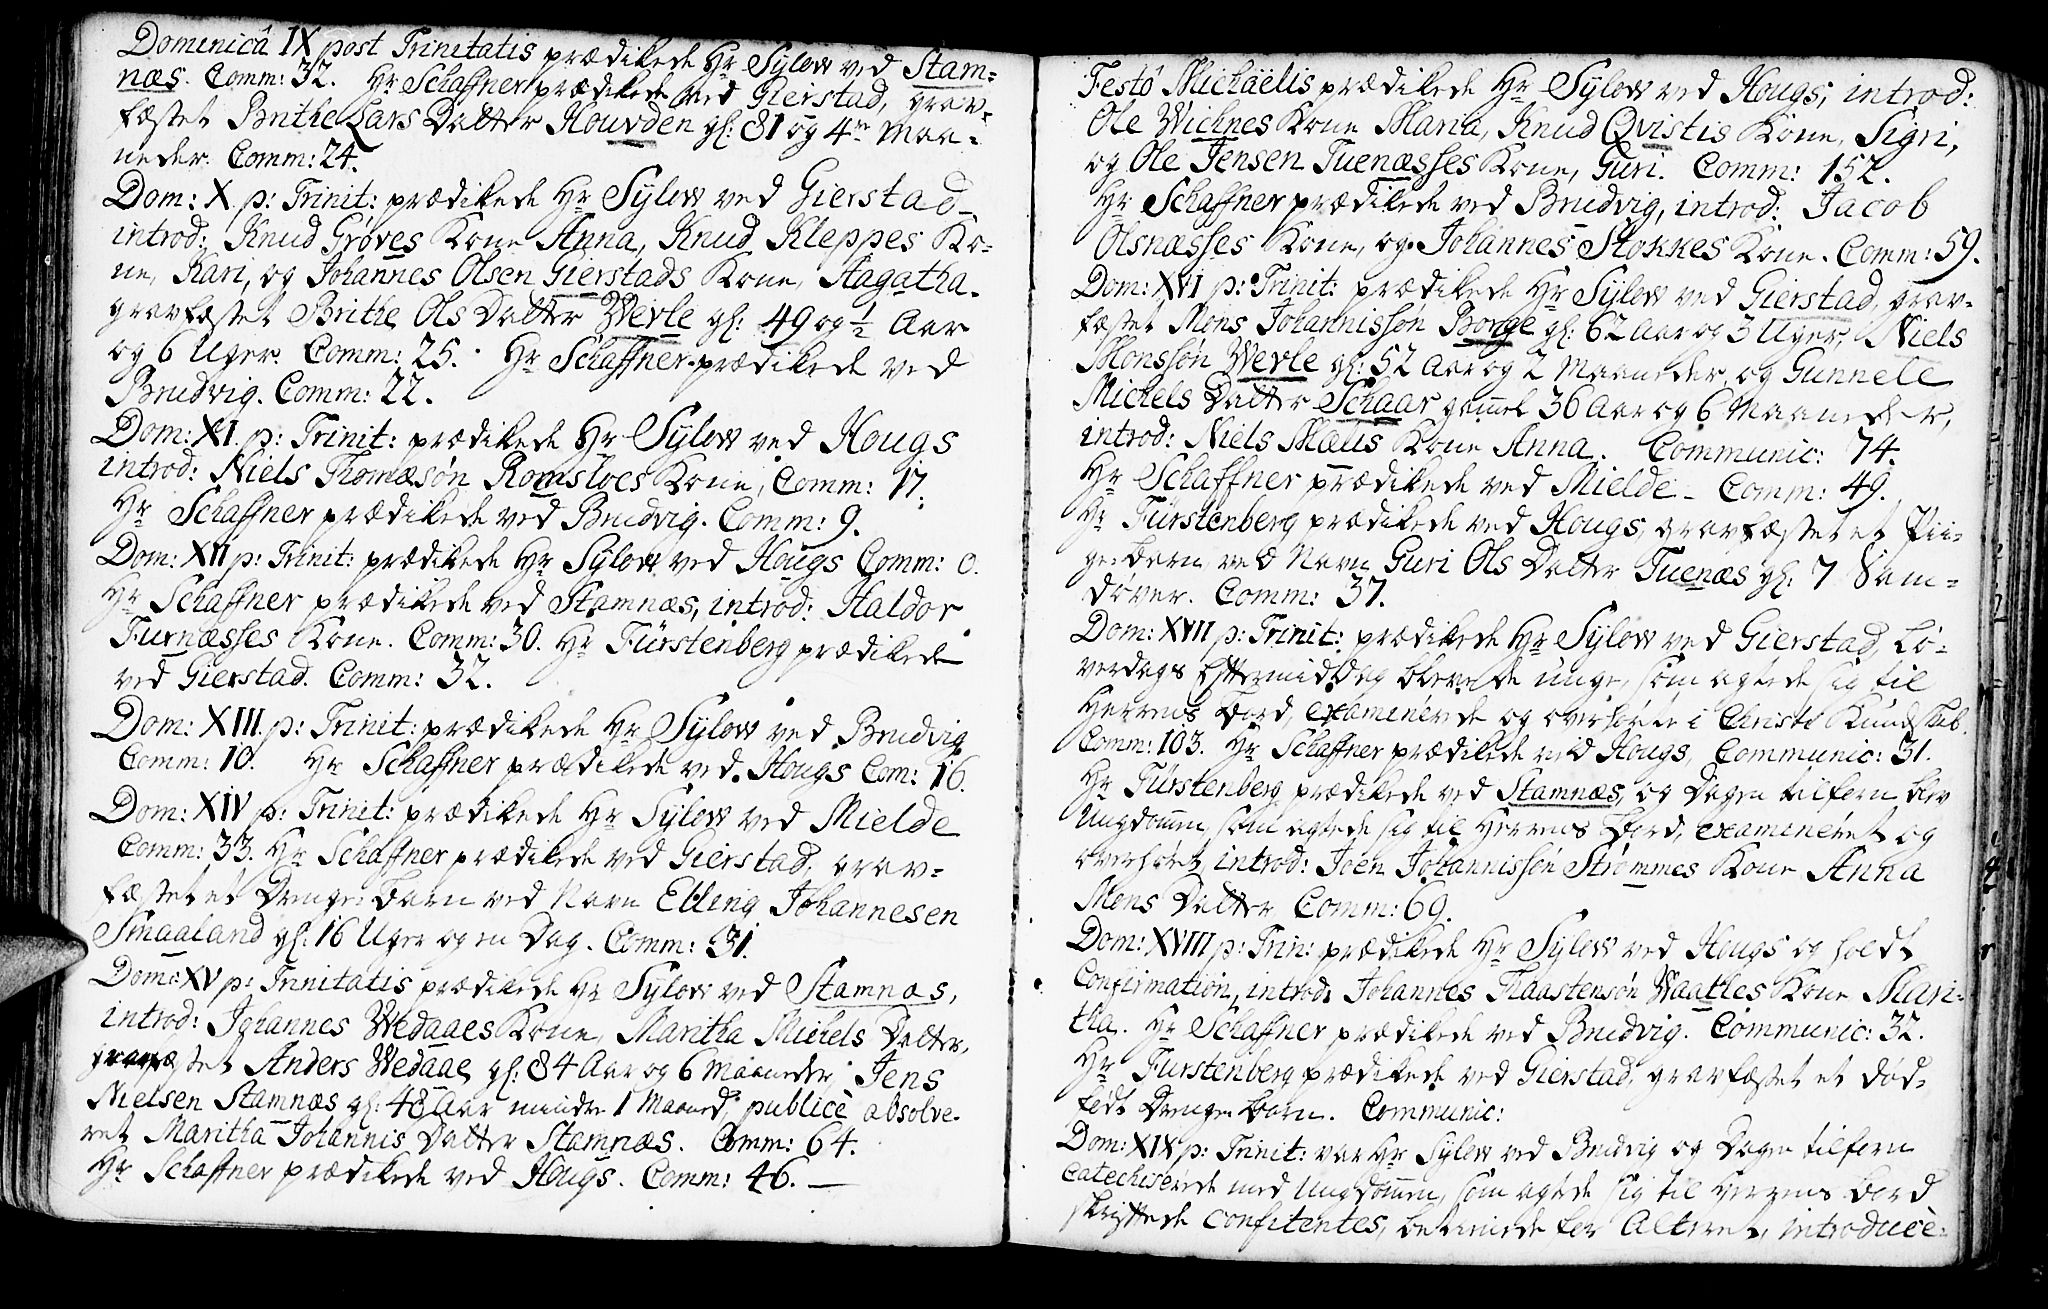 Domenicâ IX post Trinitatis prædikede Hr Sÿlow ved Stam=
næs. Comm: 32. Hr Schaffner prædikede ved Gierstad, grav=
fæstet Brithe Lars Datter Houvden gl: 81 og 4re Maa=
neder. Comm: 24.
Dom: X p: Trinit: prædikede Hr Sÿlow ved Gierstad
introd: Knud Gròves Kone Anna, Knud Kleppes Ko=
ne, Kari, og Johannes Olsen Gierstads Kone, Aagatha.
gravfæstet Brithe Ols Datter Werle gl: 49 og ½ Aar
og 6 Uger. Comm: 25. Hr Schaffner prædikede ved
Brudvig. Comm: 22.
Dom: XI. p: Trinit: prædikede Hr Sÿlow ved Hougs
introd: Niels Thomæsón Romsloes Kone, Comm: 17.
Hr Schaffner prædikede ved Brudvig. Comm: 9.
Dom: XII p: Trinit: prædikede Hr Sÿlow ved Hougs Comm: 0.
Hr Schaffner prædikede ved Stamnæs, introd: Haldor
Furnæsses Kone. Comm: 30. Hr Fürstenberg prædikede
ved Gierstad. Comm: 32.
Dom: XIII. p: Trinit: prædikede Hr Sÿlow ved Brudvig
Comm: 10. Hr Schaffner prædikede ved Hougs Com: 16.
Dom: XIV p: Trinit: prædikede Hr Sÿlow ved Mielde
Comm: 33. Hr Schaffner prædikede ved Gierstad, grav=
fæstet et Drenge-barn ved Navn Elling Johannesen
Smaaland gl: 16 Uger og en Dag. Comm: 31.
Dom: XV p: Trinitatis prædikede Hr Sÿlow ved Stamnæs,
introd: Johannes Wedaaes Kone, Maritha Michels Datter,
gravfæstet Anders Wedaae gl: 84 Aar og 6 Maaneder, Jens
Nielsen Stamnæs gl: 48 Aar mindre 1 Maaned, publicè absolve=
ret Maritha Johannis Datter Stamnæs. Comm: 64.
Hr Schaffner prædikede ved Hougs. Comm: 46.
Festô Michaëlis prædikede Hr Sÿlow ved Hougs, introd:
Ole Wichnes Kone Maria, Knud Qvistis Kone, Sigri,
og Ole Jensen Tuenæsses Kone, Guri. Comm: 152.
Hr Schaffner prædikede ved Brudvig, introd: Jacob
Olsnæsses Kone, og Johannes Stokkes Kone. Comm: 59.
Dom: XVI p: Trinit: prædikede Hr Sÿlow ved Gierstad, grav=
fæstet Mons Johannisson Borge gl: 62 Aar og 3 Uger, Niels
Monssón Werle gl: 52 Aar og 2 Maaneder, og Gunnele
Michels Datter Schaar gamel 36 Aar og 6 Maaneder,
introd: Niels Mælis Kone Anna. Communic: 74.
Hr Schaffner prædikede ved Mielde. Comm: 49.
Hr Fürstenberg prædikede ved Hougs, gravfæstet et Pii=
ge-barn ved Navn Guri Ols Datter Tuenæs gl: 7 Sam=
dóver. Comm: 37.
Dom: XVII p: Trinit: prædikede Hr Sÿlow ved Gierstad, Ló=
verdags Eftermiddag bleve de unge, som agtede sig til
Herrens Bord, examinerede og overhórte i Christi Kundskab.
Comm: 103. Hr Schaffner prædikede ved Hougs, Communic: 31.
Hr Fürstenberg prædikede ved Stamnæs, og Dagen tilforn blev
Ungdomen, som agtede sig til Herrens Bord, examineret og
overhóret, introd: Joen Johannissón Strómmes Kone Anna
Mons Datter Comm: 69.
Dom: XVIII p: Trin: prædikede Hr Sÿlow ved Hougs og holdt
Confirmation, introd: Johannes Haastensón Waatles Kone Mari=
tha. Hr Schaffner prædikede ved Brudvig. Communic: 32.
Hr Fürstenberg prædikede ved Gierstad, gravfæstet et dód=
fódt Drenge-barn. Communic:
Dom: XIX p: Trinit: var Hr Sÿlow ved Brudvig og Dagen tilforn
Catechiserede med Ungdomen, som agtede sig til Herrens Bord
skriftede confitentes, betiente for Alteret, introduce=